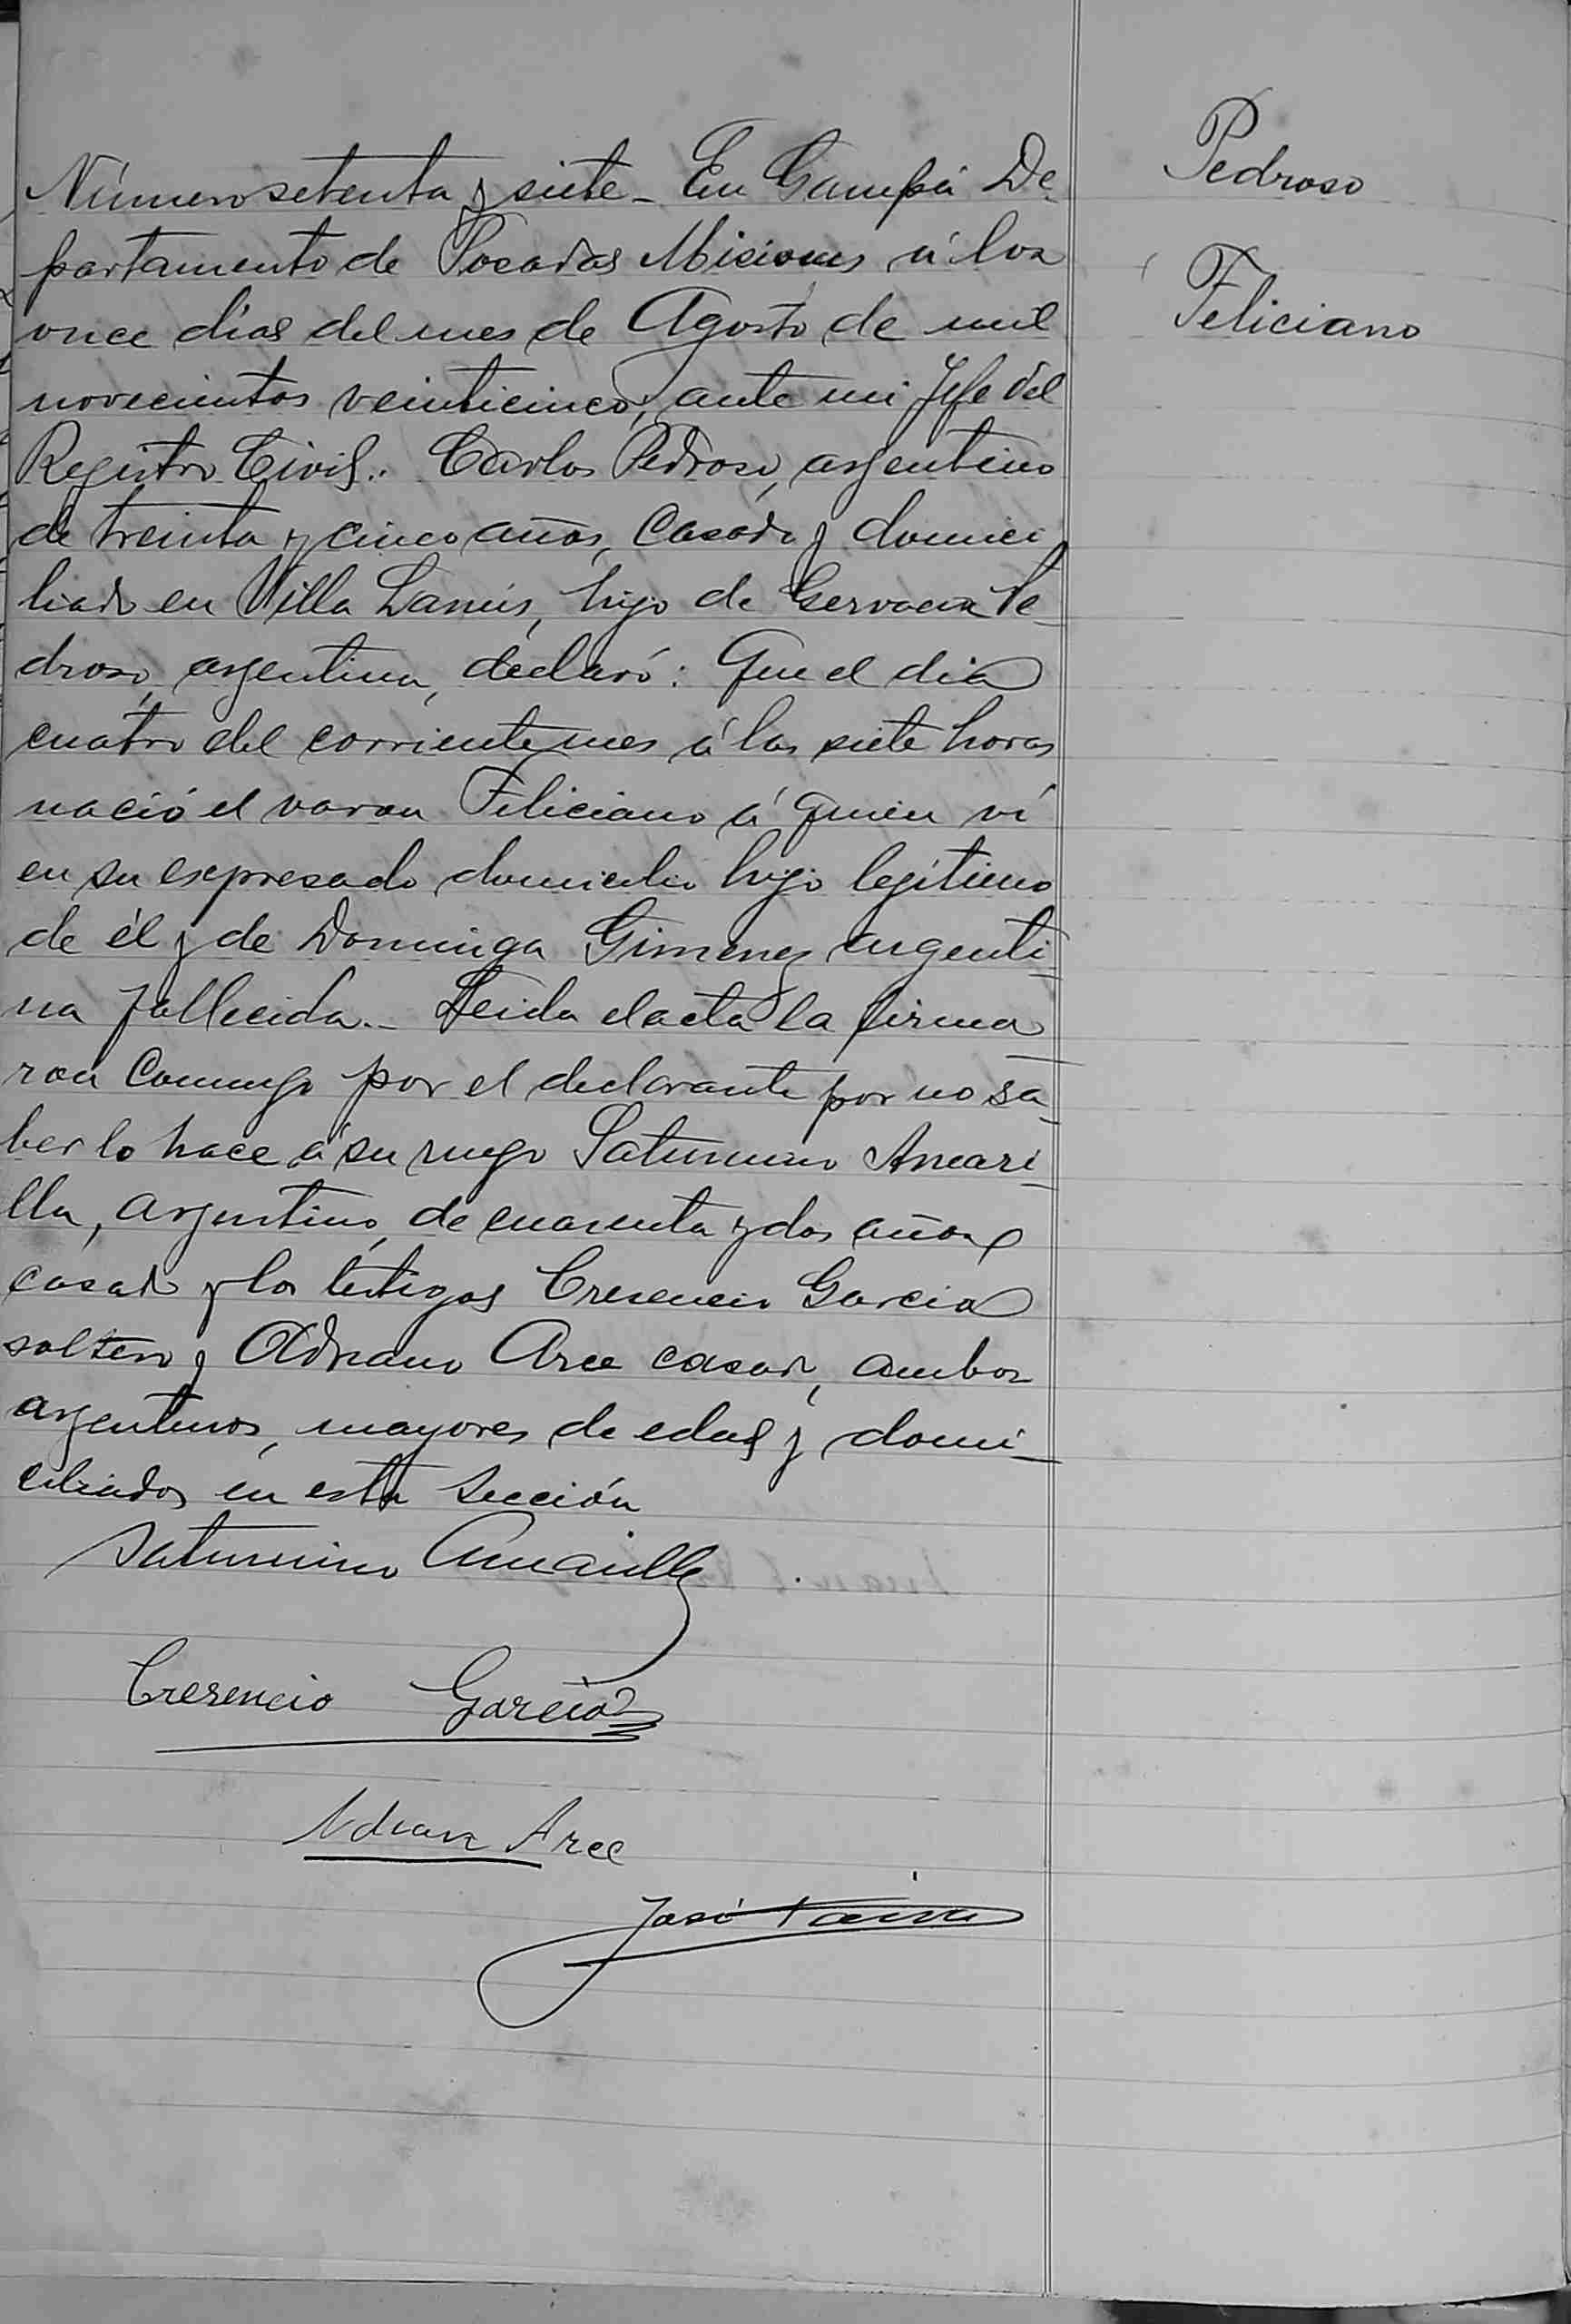 Número setenta y siete - En Garupá De-
partamento de Posadas Misiones á los
once días del mes de Agosto de mil
novecientos veinticinco, ante mi Jefe del
Registro Civil: Carlos Pedroso, argentino
de treinta y cinco años, casado y domici
liado en Villa Lanús, hijo de Gervacia Pe-
droso, argentina, declaró: Que el dia
cuatro del corriente mes á las siete horas
nació el varon Feliciano á quien ví
en su expresado domicilio hijo legítimo
de él y de Dominga Gimenez argenti-
na fallecida.- Leida el acta la firma-
ron conmigo por el declarante por no sa-
ber lo hace á su ruego Saturnino Amari-
lla, argentino, de cuarenta y dos años
casado y los testigos Cresencio Garcia
soltero y Adriano Arce casado, ambos
argentinos, mayores de edad y domi-
ciliados en esta sección
Saturnino Amarilla
Cresencio García
Arce
José
Pedroso
Feliciano